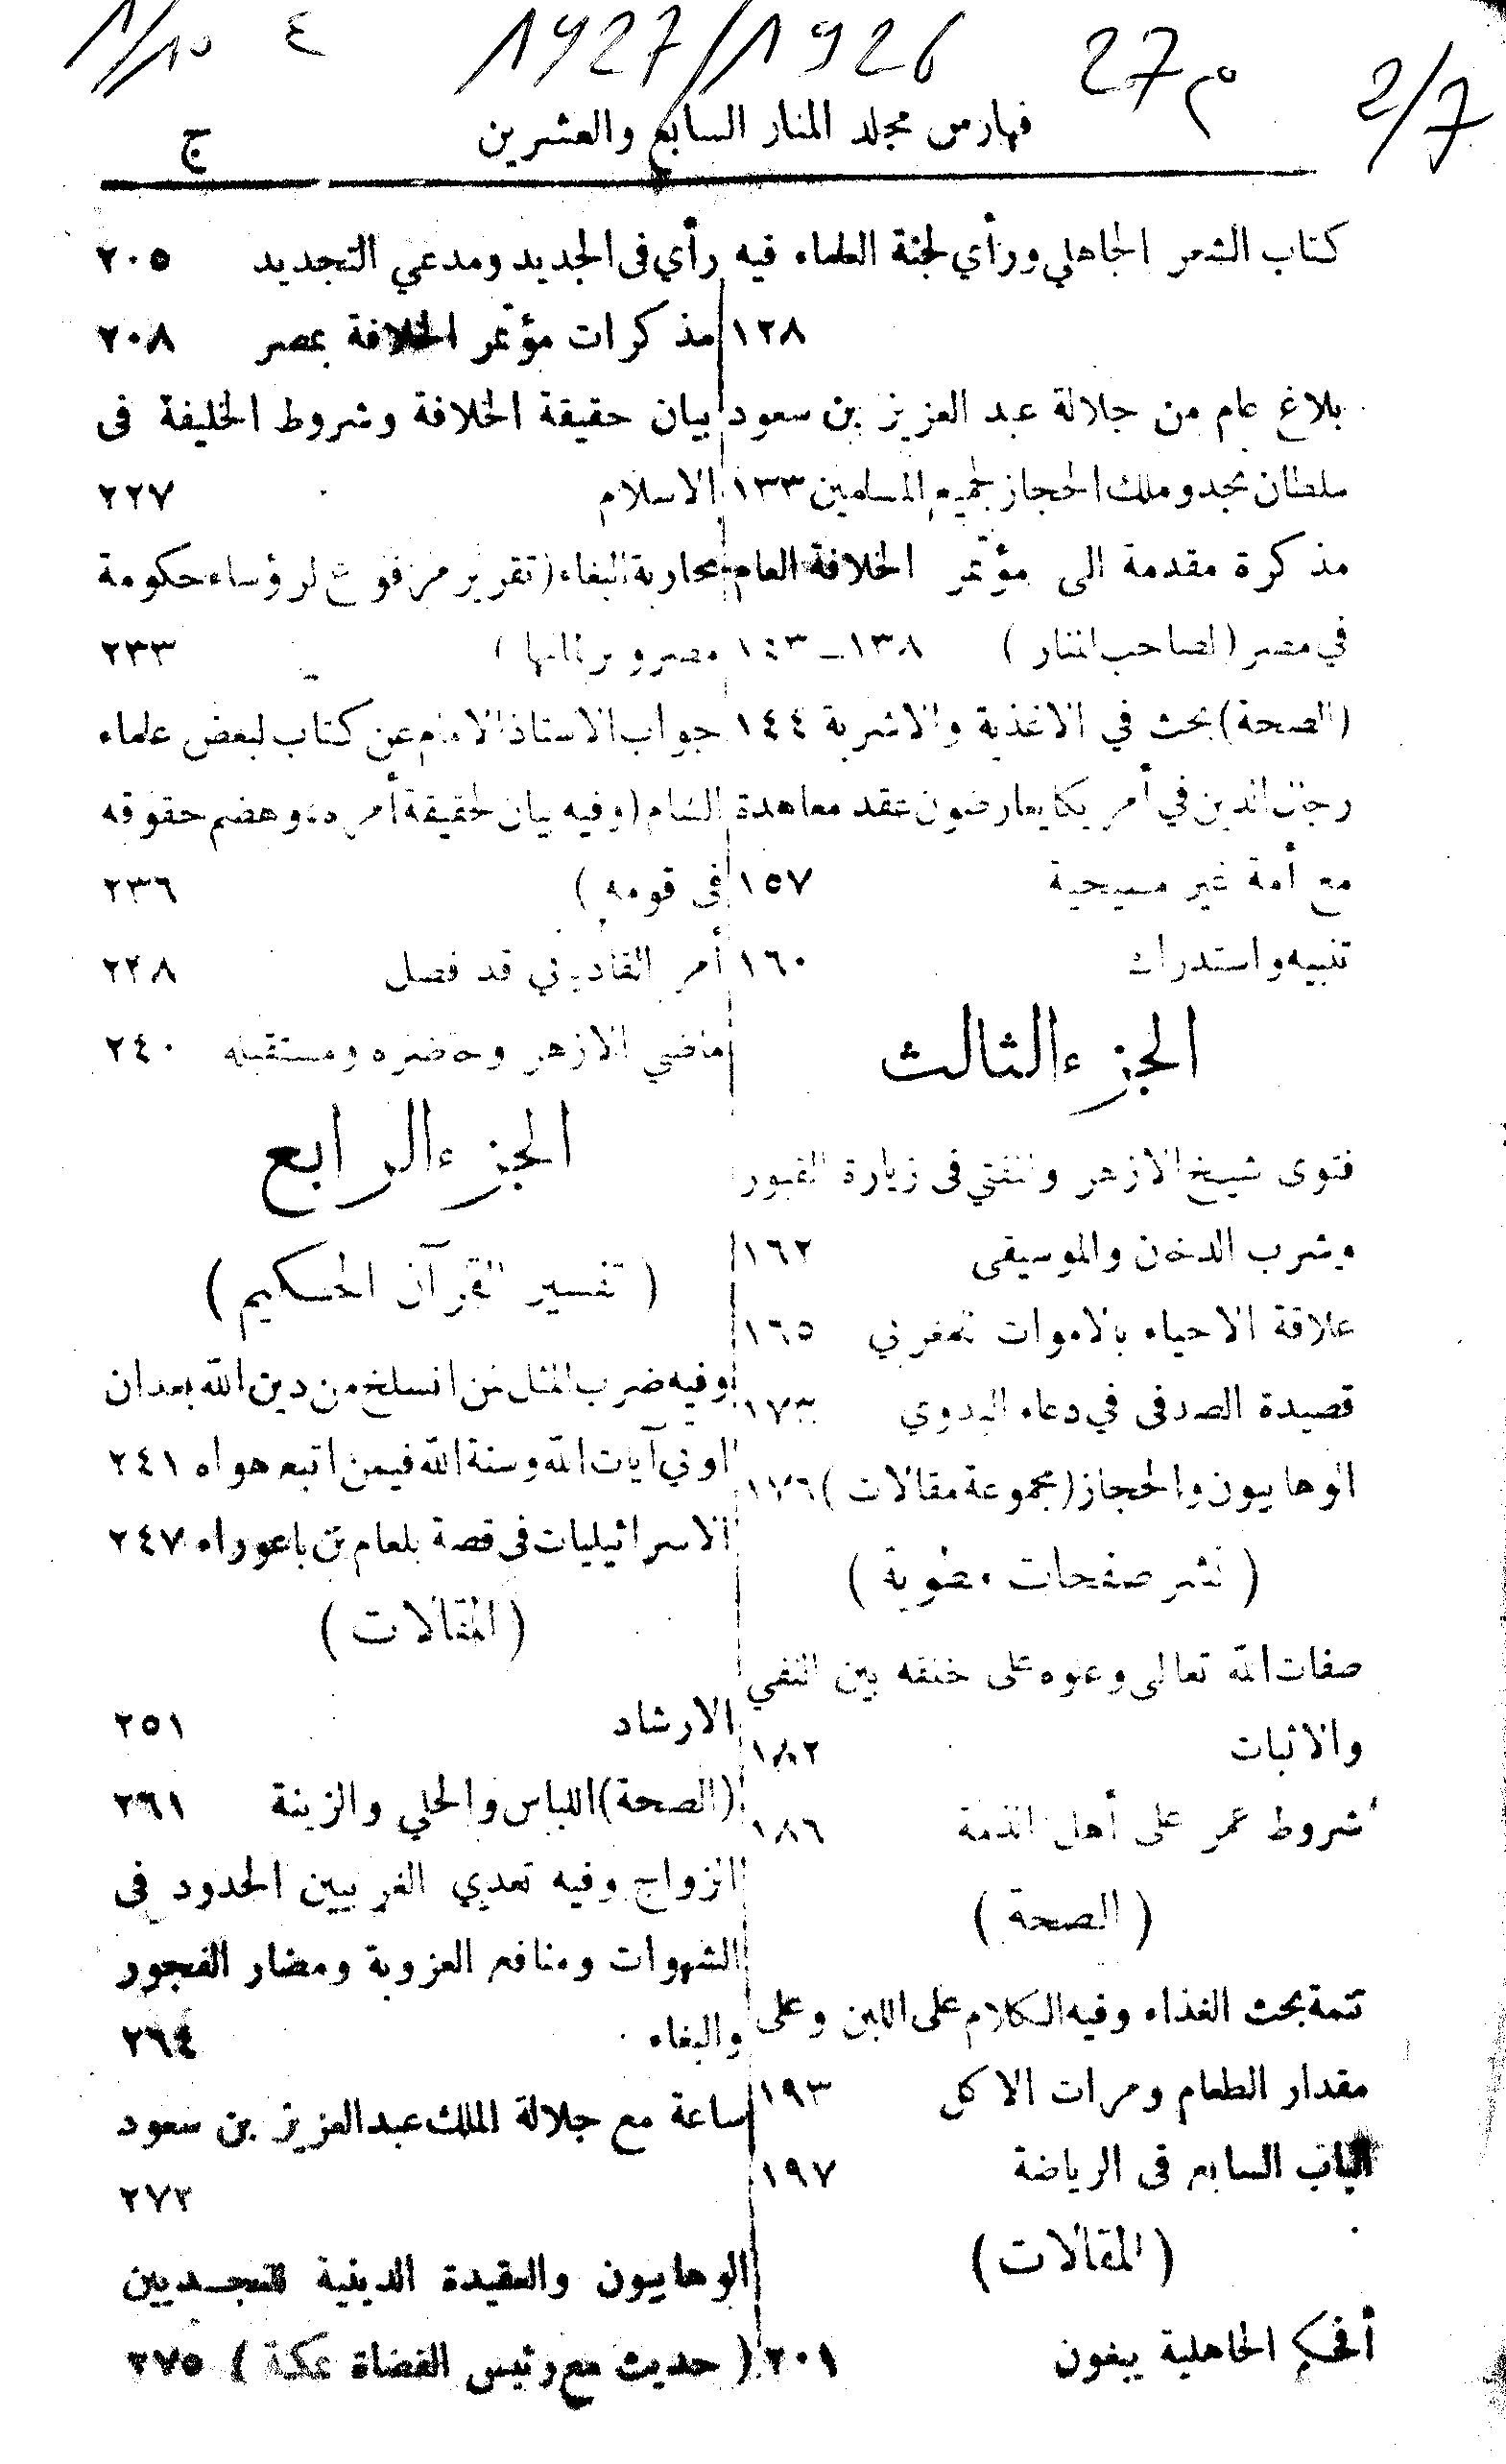 ١/١٥ ٤ 1927/1926 27 م 2/7
فهارس مجلد المنار السابع والعشرين ج
كتاب الشعر الجاهلي ورأي لجنة العلماء فيه
١٢٨
بلاغ عام من جلالة عبد العزيز بن سعود
سلطان نجد وملك الحجاز لجميع المسلمين ١٣٣
مذكرة مقدمة الى مؤتمر الخلافة العام
في مصر (لصاحب المنار) ١٣٨ــ١٤٣
(الصحة) بحث في الاغذية والاشربة ١٤٤
رجال الدين في أمريكا يعارضون عقد معاهدة
مع أمة غير مسيحية ١٥٧
تنبيه واستدراك ١٦٠
الجزء الثالث
فتوى شيخ الازهر والمفتي في زيارة القبور
وشرب الدخان والموسيقى ١٦٢
علاقة الاحياء بالاموات ١٦٥
قصيدة الصدفى في دعاء البدوي ١٧٣
الوهابيون والحجاز (مجموعة مقالات) ١٧٦
(نشر صفحات مطوية)
صفات الله تعالى وعلوه على خلقه بين النفي
والاثبات ١٨٢
شروط عمر على أهل الذمة ١٨٦
(الصحة)
تتمة بحث الغذاء وفيه الكلام على اللبن وعلى
مقدار الطعام ومرات الاكل ١٩٣
الباب السابع فى الرياضة ١٩٧
(المقالات)
أفحكم الجاهلية يبغون ٢٠١
رأي فى الجديد ومدعي التجديد ٢٠٥
مذكرات مؤتمر الخلافة بمصر ٢٠٨
بيان حقيقة الخلافة وشروط الخليفة فى
الاسلام ٢٢٧
محاربة البغاء (تقرير مرفوع لرؤساء حكومة
مصر وبرلمانها) ٢٣٣
جواب الاستاذ الامام عن كتاب لبعض علماء
الشام (وفيه بيان لحقيقة أمره وهضم حقوقه
فى قومه) ٢٣٦
أمر القادياني قد فصل ٢٣٨
ماضي الازهر وحاضره ومستقبله ٢٤٠
الجزء الرابع
(تفسير القرآن الحكيم)
وفيه ضرب المثل لمن انسلخ من دين الله بعد ان
اوتي آيات الله وسنة الله فيمن اتبع هواه ٢٤١
الاسرائيليات فى قصة بلعام بن باعوراء ٢٤٧
(المقالات)
الارشاد ٢٥١
(الصحة) اللباس والحلي والزينة ٢٦١
الزواج وفيه تعدي الغربيين الحدود فى
الشهوات ومنافع العزوبة ومضار الفجور
والبغاء ٢٦٤
ساعة مع جلالة الملك عبد العزيز بن سعود
٢٧٢
الوهابيون والعقيدة الدينية للنجديين
(حديث مع رئيس القضاة بمكة) ٢٧٥